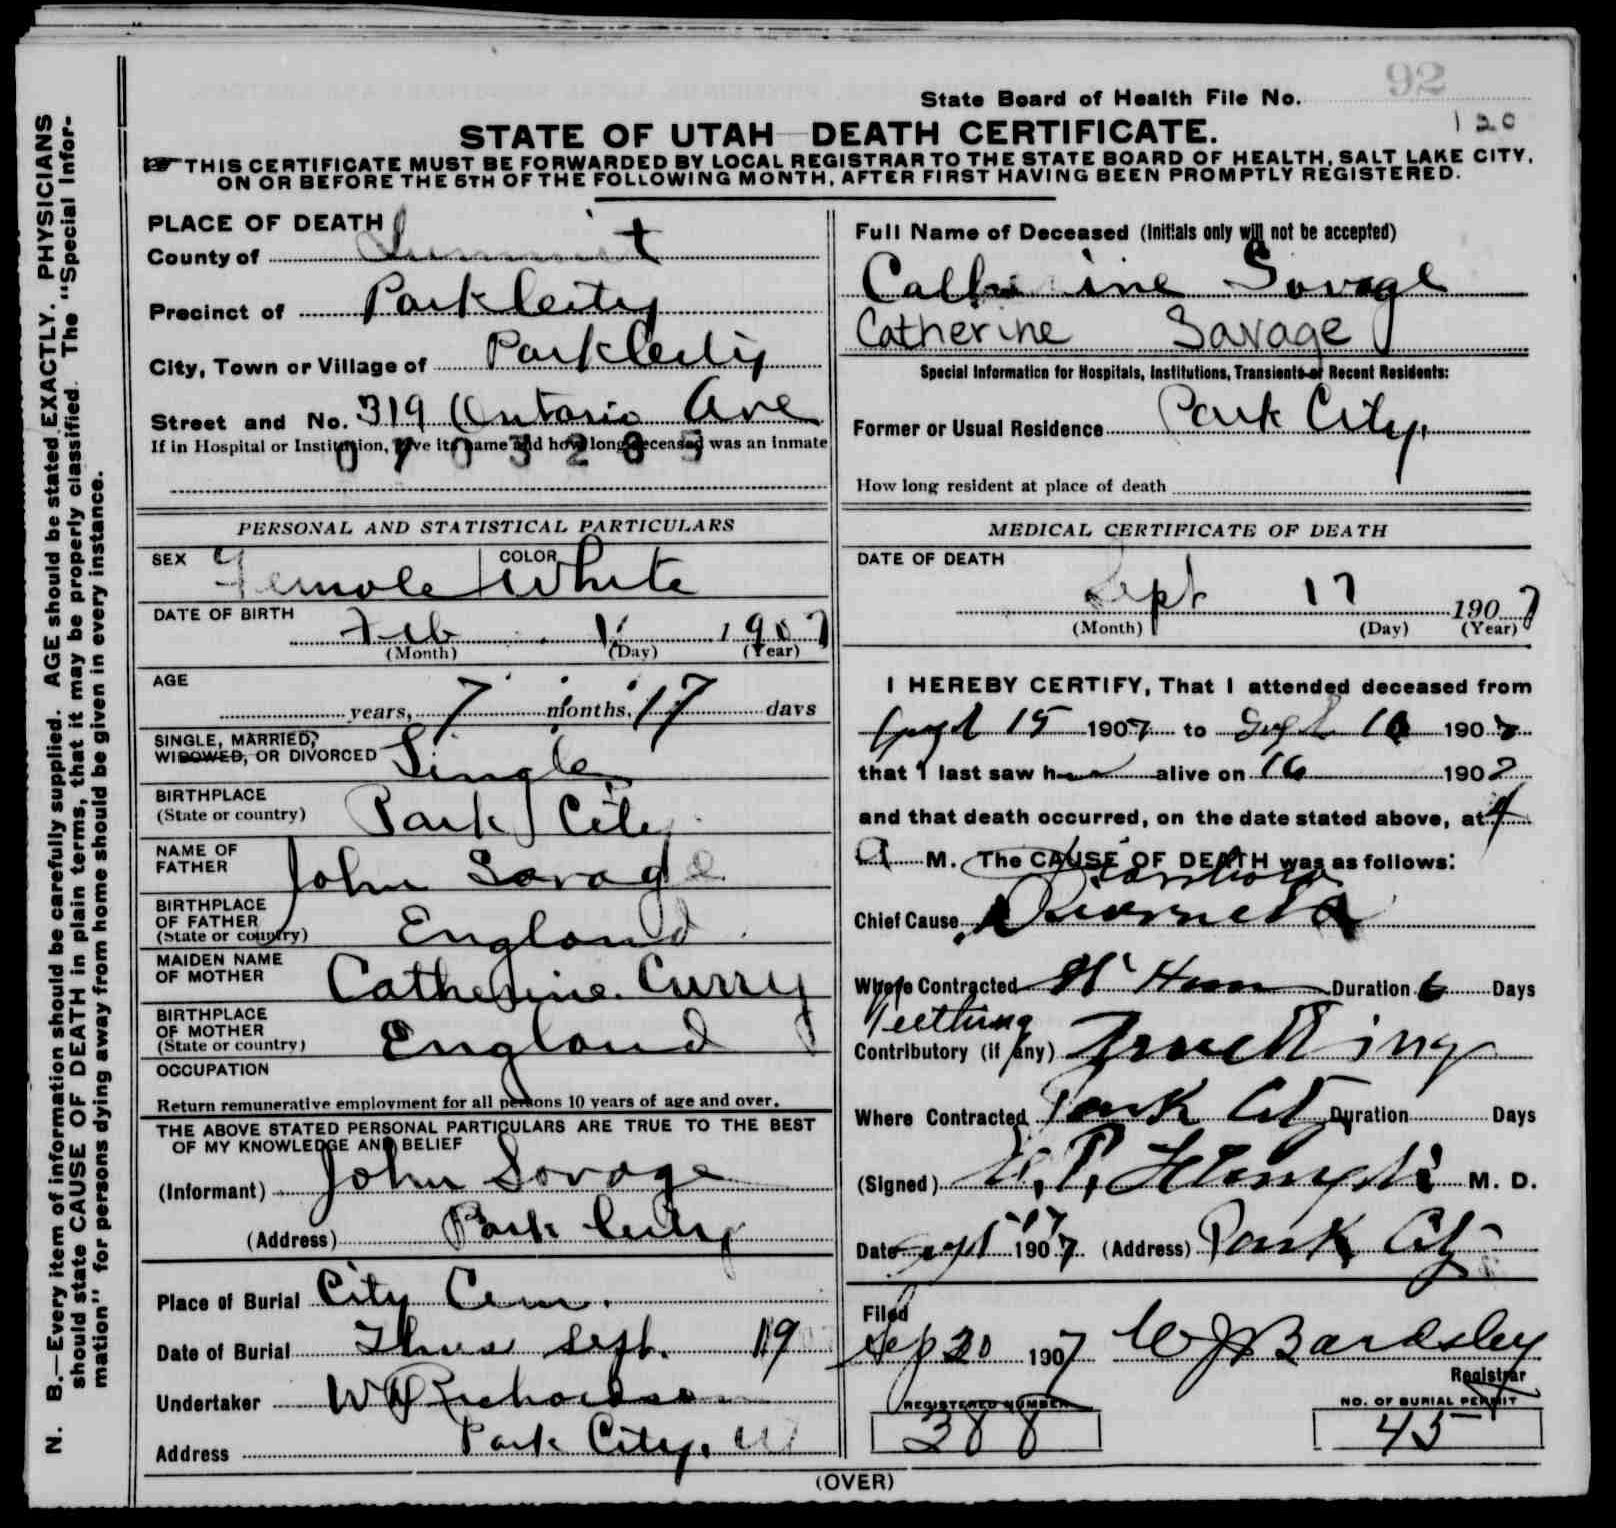 92
State Board of Health File No.
120
STATE OF UTAH DEATH CERTIFICATE.
THIS CERTIFICATE MUST BE FORWARDED BY LOCAL REGISTRAR TO THE STATE BOARD OF HEALTH, SALT LAKE CITY,
ON OR BEFORE THE 5TH OF THE FOLLOWING MONTH, AFTER FIRST HAVING BEEN PROMPTLY REGISTERED.
N. B.—Every item of information should be carefully supplied. AGE should be stated EXACTLY. PHYSICIANS
should state CAUSE OF DEATH in plain terms, that it may be properly classified. The "Special Infor-
mation" for persons dying away from home should be given in every instance.
PLACE OF DEATH
County of Summit
Precinct of Park City
City, Town or Village of Park City
Street and No. 319 Ontario Ave
If in Hospital or Institution, give its name and how long deceased was an inmate
PERSONAL AND STATISTICAL PARTICULARS
SEX Female COLOR White
DATE OF BIRTH
Feb 1 1907
(Month) (Day) (Year)
AGE
years, 7 months, 17 days
SINGLE, MARRIED,
WIDOWED, OR DIVORCED Single
BIRTHPLACE
(State or country) Park City
NAME OF
FATHER John Savage
BIRTHPLACE
OF FATHER
(State or country) England
MAIDEN NAME
OF MOTHER Catherine Curry
BIRTHPLACE
OF MOTHER
(State or country) England
OCCUPATION
Return remunerative employment for all persons 10 years of age and over.
THE ABOVE STATED PERSONAL PARTICULARS ARE TRUE TO THE BEST
OF MY KNOWLEDGE AND BELIEF
(Informant) John Savage
(Address) Park City
Place of Burial City Cem.
Date of Burial Thurs Sept. 19
Undertaker W Richardson
Address Park City, Ut
Full Name of Deceased (Initials only will not be accepted)
Catherine Savage
Catherine Savage
Special Information for Hospitals, Institutions, Transients or Recent Residents:
Former or Usual Residence Park City,
How long resident at place of death
MEDICAL CERTIFICATE OF DEATH
DATE OF DEATH
Sept 17 1907
(Month) (Day) (Year)
I HEREBY CERTIFY, That I attended deceased from
Sept 15 1907 to Sept 16 1907
that I last saw her alive on 16 1907
and that death occurred, on the date stated above, at 4
a M. The CAUSE OF DEATH was as follows:
Diarrhoea
Chief Cause
Where Contracted At Home Duration 6 Days
Teething
Contributory (if any)
Where Contracted Park City Duration Days
(Signed) M. D.
Date Sept 17 1907 (Address) Park City
Filed
Sep 20 1907 W J Bardsley
Registrar
REGISTERED NUMBER
388
NO. OF BURIAL PERMIT
45
(OVER)